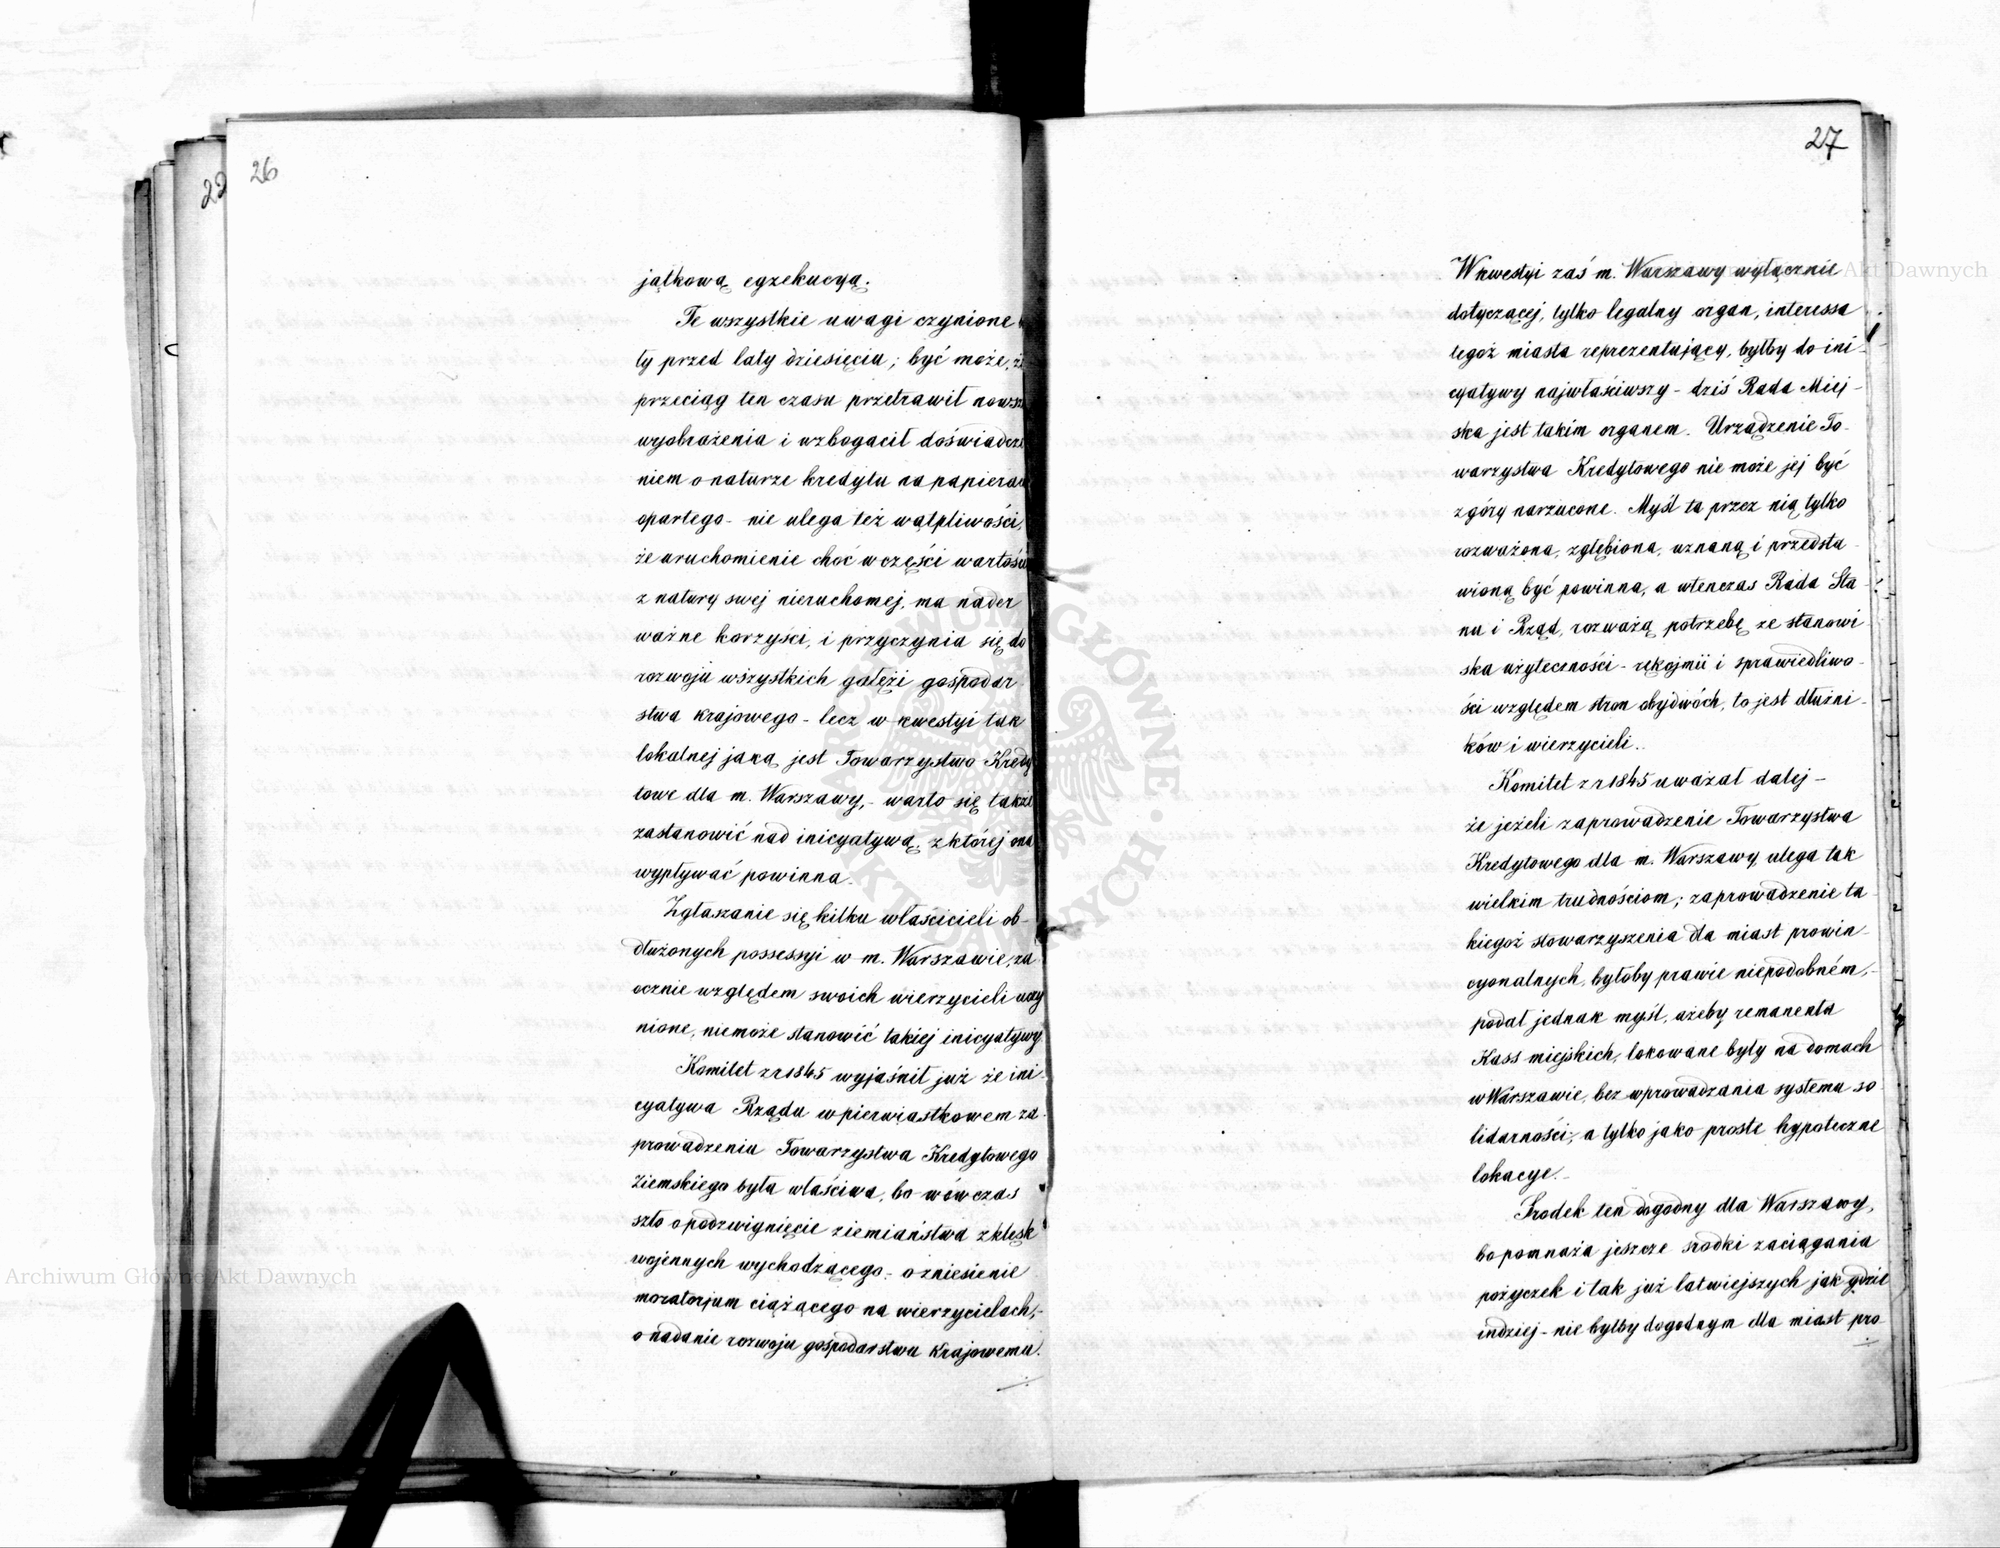 26
22
jątkową egzekucyą.
Te wszystkie uwagi czynione
ty przed laty dziesięciu; być może,
przeciąg ten czasu przetrawił nowsze
wyobrażenia i wzbogacił doświadcze
niem o naturze kredytu na papierach
opartego - nie ulega też wątpliwości,
że uruchomienie choć w części wartości
z natury swej nieruchomej, ma nader
ważne korzyści, i przyczynia się do
rozwoju wszystkich gałęzi gospodar
stwa krajowego - lecz w kwestyi tak
lokalnej jaką jest Towarzystwo Kredy
towe dla m. Warszawy, - warto się także
zastanowić nad inicyatywą, z której ona
wypływać powinna.
Zgłaszanie się kilku właścicieli ob-
dłużonych possessyi w m. Warszawie, za
ocznie względem swoich wierzycieli uczy
nione, niemoże stanowić takiej inicyatywy
Komitet z r 1845 wyjaśnił już że ini-
cyatywa Rządu w pierwiastkowem za-
prowadzeniu Towarzystwa Kredytowego
Ziemskiego była właściwa, bo wówczas
szło o podzwignięcie ziemiaństwa z klęsk
wojennych wychodzącego - o zniesienie
moratorjum ciążącego na wierzycielach, -
o nadanie rozwoju gospodarstwu Krajowemu.
27
W kwestyi zaś m. Warszawy wyłącznie
dotyczącej, tylko legalny organ, interessa
tegoż miasta reprezentujący, byłby do ini-
cyatywy najwłaściwszy - dziś Rada Miej-
ska jest takim organem. Urządzenie To-
warzystwa Kredytowego nie może jej być
z góry narzucone. Myśl ta przez nią tylko
rozważona, zgłębiona, uznaną i przedsta-
wioną być powinna, a wtenczas Rada Sta-
nu i Rząd, rozważą potrzebę ze stanowi
ska użyteczności - rękojmii i sprawiedliwo-
ści względem stron obydwóch, to jest dłużni-
ków i wierzycieli.
Komitet z r 1845 uważał dalej -
że jeżeli zaprowadzenie Towarzystwa
Kredytowego dla m. Warszawy ulega tak
wielkim trudnościom; zaprowadzenie ta
kiegoż stowarzyszenia dla miast prowin-
cyonalnych, byłoby prawie niepodobném, -
podał jednak myśl, ażeby remanenta
Kass miejskich, lokowane były na domach
w Warszawie, bez wprowadzania systemu so
lidarności, a tylko jako proste hypoteczne
lokacye. -
Srodek ten dogodny dla Warszawy,
bo pomnaża jeszcze srodki zaciągania
pożyczek i tak już łatwiejszych jak gdzie
indziej - nie byłby dogodnym dla miast pro
Archiwum Główne Akt Dawnych
Akt Dawnych
ARCHIWUM GŁÓWNE AKT DAWNYCH